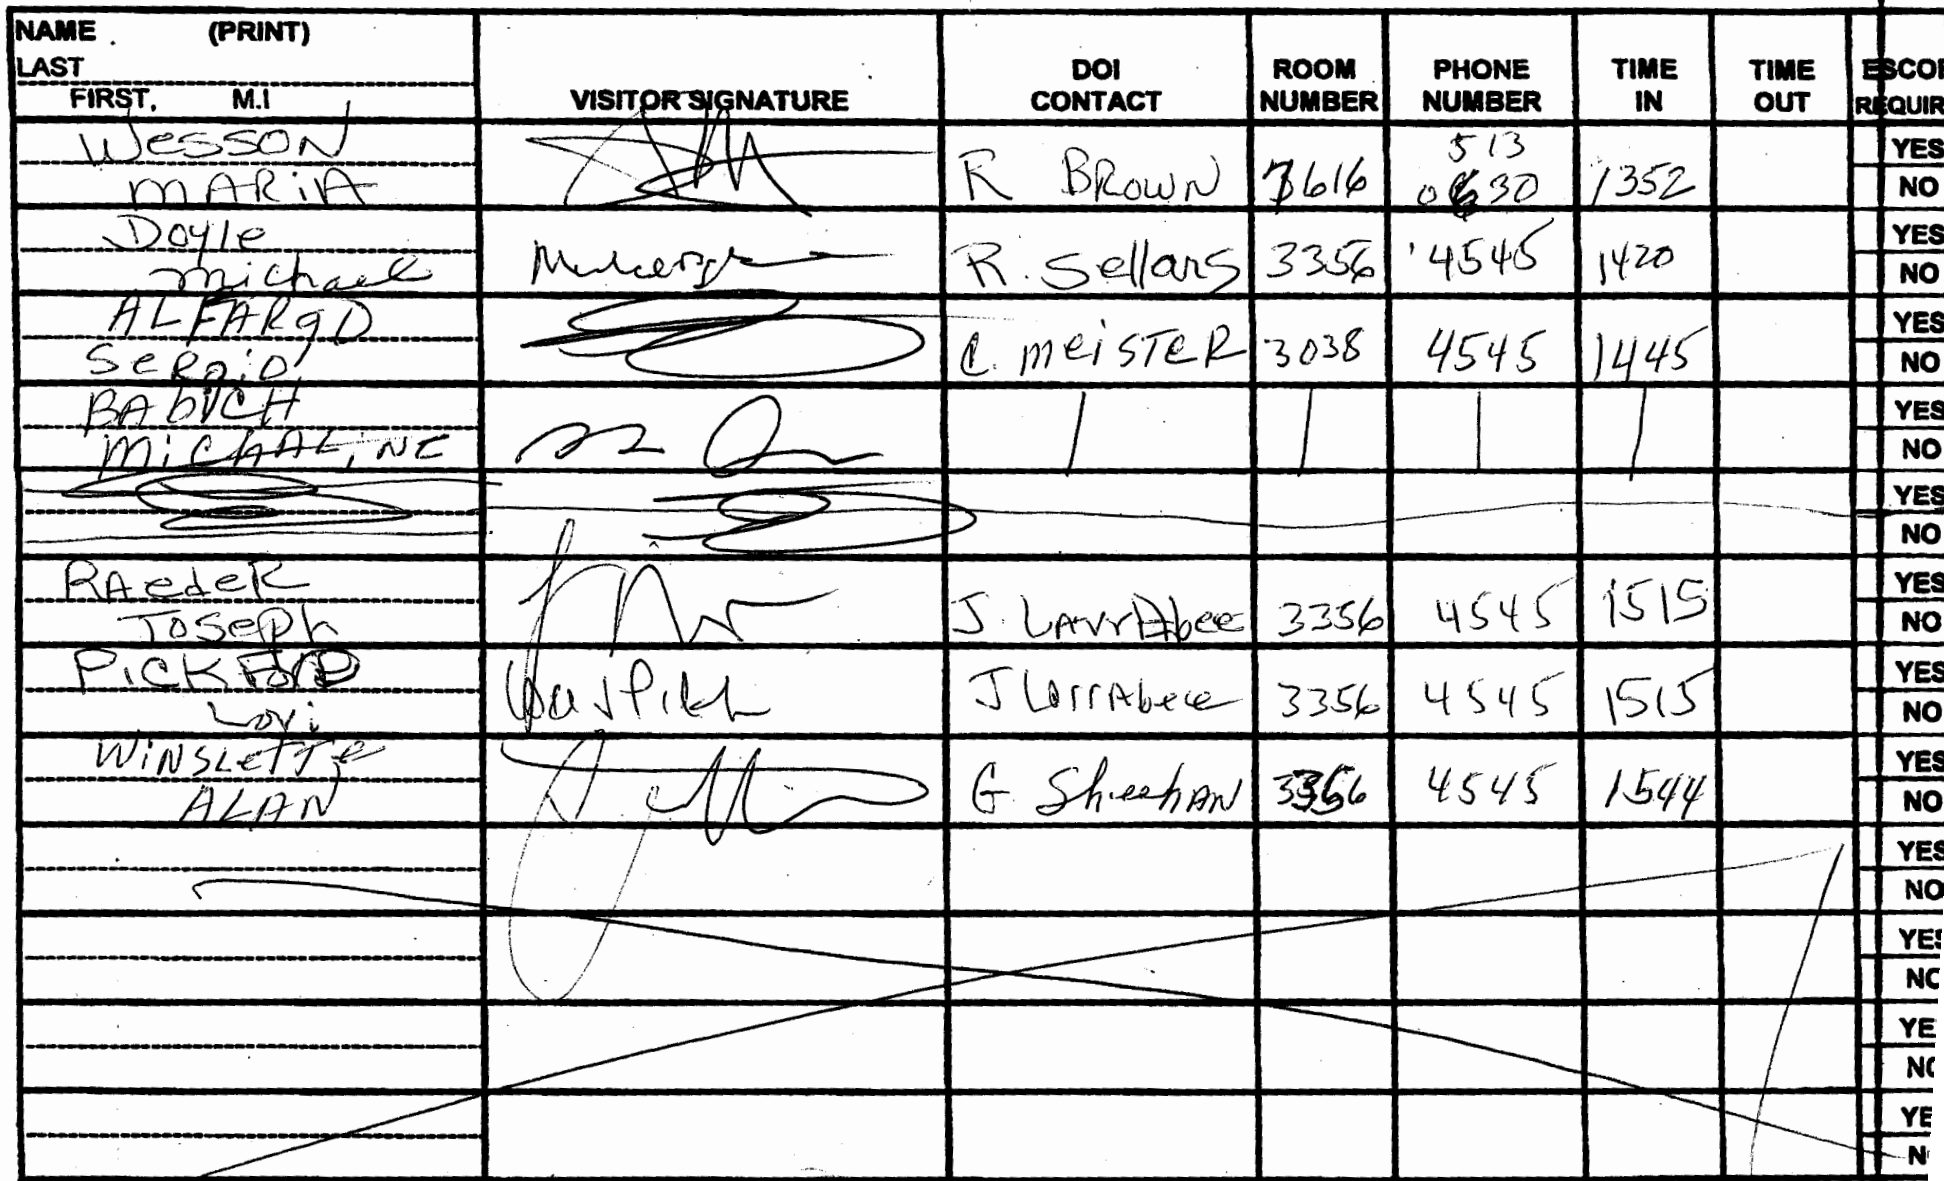 NAME (PRINT)
LAST
FIRST, M.I
VISITOR SIGNATURE
DOI CONTACT
ROOM NUMBER
PHONE NUMBER
TIME IN
TIME OUT
ESCOR
REQUIR
Wesson
MARIA R BROWN 7616 513 0630 1352 YES NO
Doyle
Michael R. Sellars 3356 4545 1420 YES NO
ALFARO
Sergio C. MEISTER 3038 4545 1445 YES NO
BABICH
MICHALINE | | | | YES NO
YES NO
RAedeR
Joseph J. LArrAbee 3356 4545 1515 YES NO
PICKFORD
Lori J LarrAbee 3356 4545 1515 YES NO
WINSLETTe
ALAN G Sheehan 3356 4545 1544 YES NO
YES NO
YES NO
YE NO
YE N